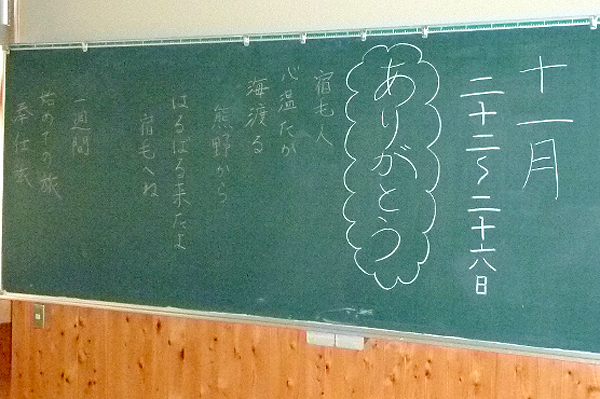 十一月
二十二〜二十六日
ありがとう
宿も人
心温たか
海渡る
熊野から
はるばる来たよ
宿毛へね
一週間
始めての旅
奉仕去